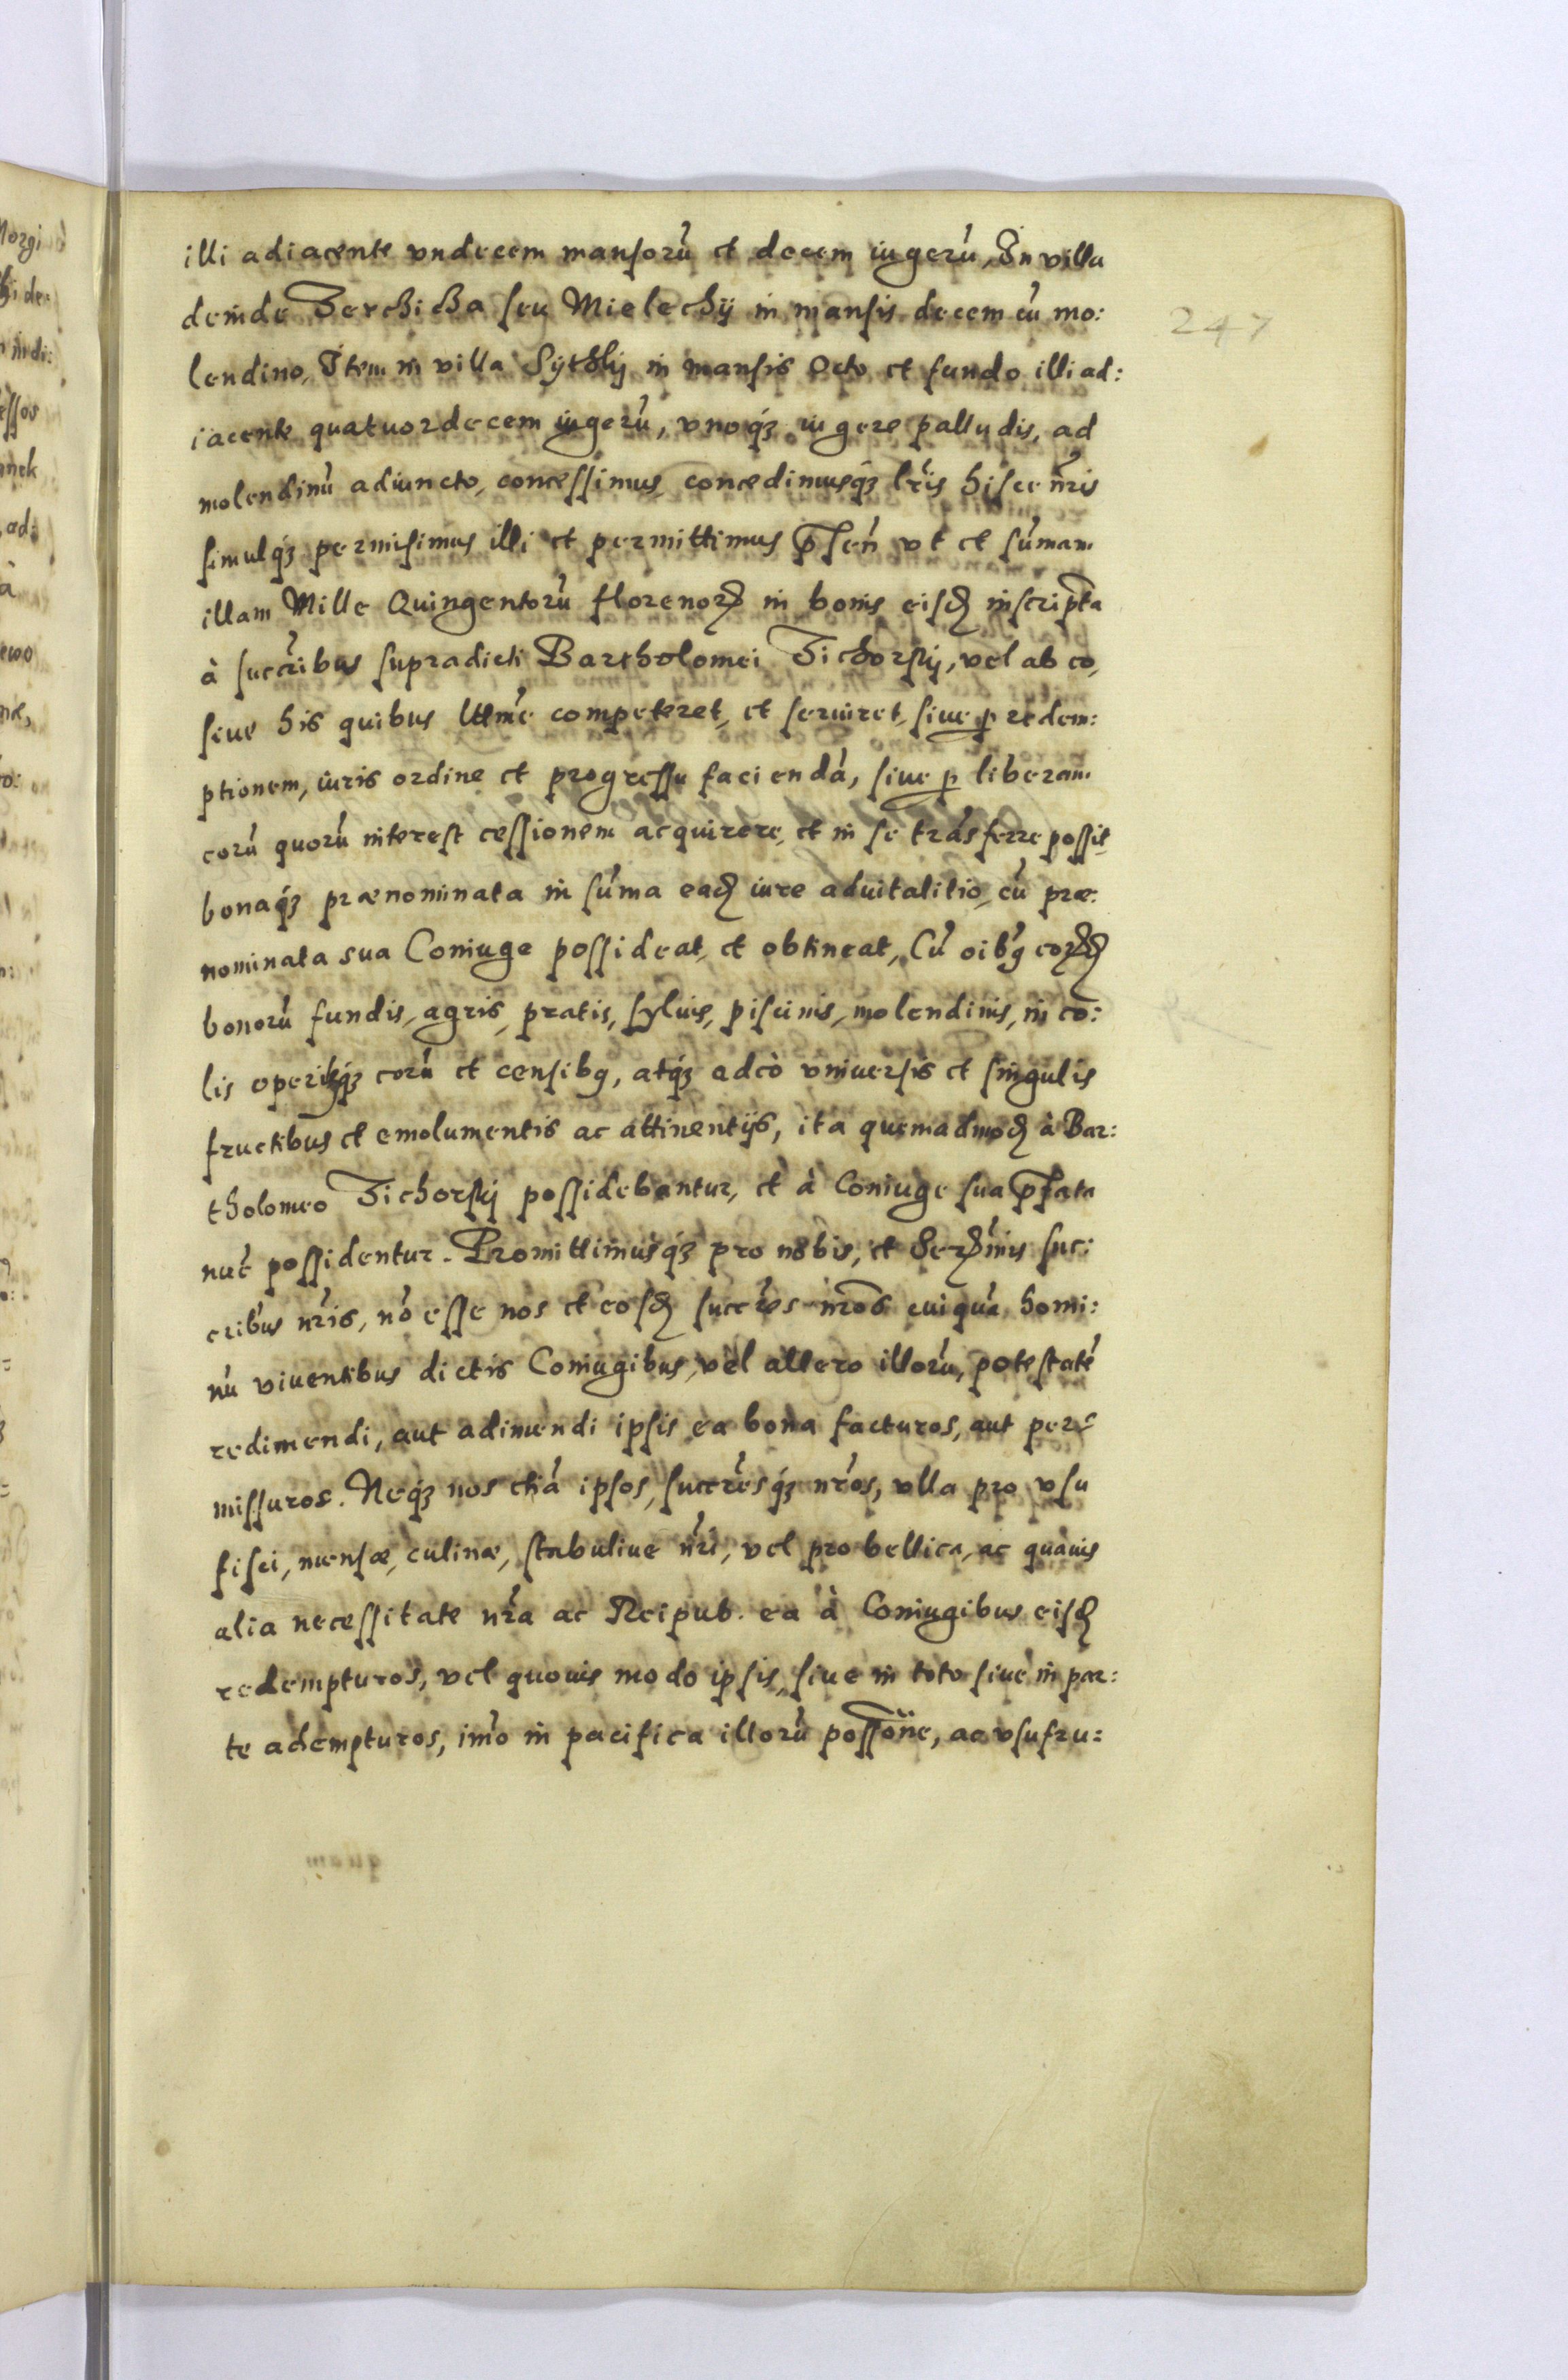 illi adiacente vndecem mansorũ et decem iugerũ, In villa
deinde Terchicha seu Mielechij in mansis decem cũ mo:
247
lendino, Item in villa Sythkij in mansis Octo et fundo illi ad:
iacente quatuordecem iugerũ, vnoq́ꝫ iugere palludis, ad
molendinũ adiuncto, concessimus, concedimusq́ꝫ lr̃is hisce nr̃is
simulq́ꝫ permisimus illi et permittimus p̃sen̄ vt et sum̃am
illam Mille Quingentorũ florenorꝫ in bonis eisdꝫ inscripta
à succr̃ibus supradicti Bartholomei Tichorskij, vel ab eo,
siue his quibus ltime competeret, et seruiret, siue ꝑ redem:
ptionem, iuris ordine et progressu faciendã, siue ꝑ liberam
eorũ quorũ interest cessionem acquirere, et in se trãsferre possit,
bonaq́ꝫ prænominata in sum̃a eadꝫ iure aduitalitio, cũ præ:
nominata sua Coniuge possideat, et obtineat, Cũ oib9 eorꝫdꝫ
bonorũ fundis, agris, pratis, syluis, piscinis, molendinis, in co:
lis operibq́ꝫ eorũ et censib9, atq́ꝫ adeò vniuersis et singulis
fructibus et emolumentis ac attinentijs, ita quemadmodꝫ à Bar:
tholomeo Tichorskij possidebantur, et à Coniuge sua p̃fata
nũc possidentur. Promittimusq́ꝫ pro nobis, et Serꝫmis suc:
cribus nr̃is, nõ esse nos et eosdꝫ succr̃es nr̃os cuiquã homi:
nũ viuentibus dictis Coniugibus, vel altero illorũ, potestatẽ
redimendi, aut adimendi ipsis ea bona facturos, aut per:
missuros. Neq́ꝫ nos etiã ipsos, succr̃esq́ꝫ nr̃os, vlla pro vsu
fisci, mensæ, culinæ, stabuliue nr̃i, vel pro bellica, ac quauis
alia necessitate nr̃a ac Reipub. ea à Coniugibus eisdꝫ
redempturos, vel quouis modo ipsis, siue in toto siue in par:
te adempturos, im̃o in pacifica illorũ possõne, ac vsufru: